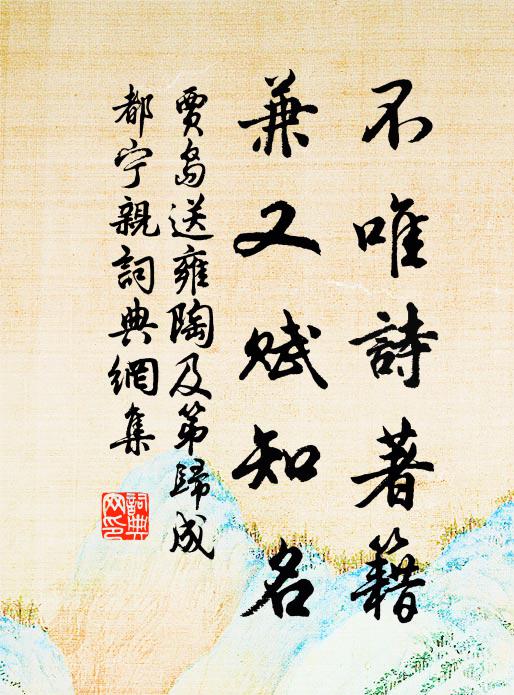 不唯詩著籍
兼又賦知名
賈島送雍陶及第歸成
都宁親詞典網集
詞典
网印